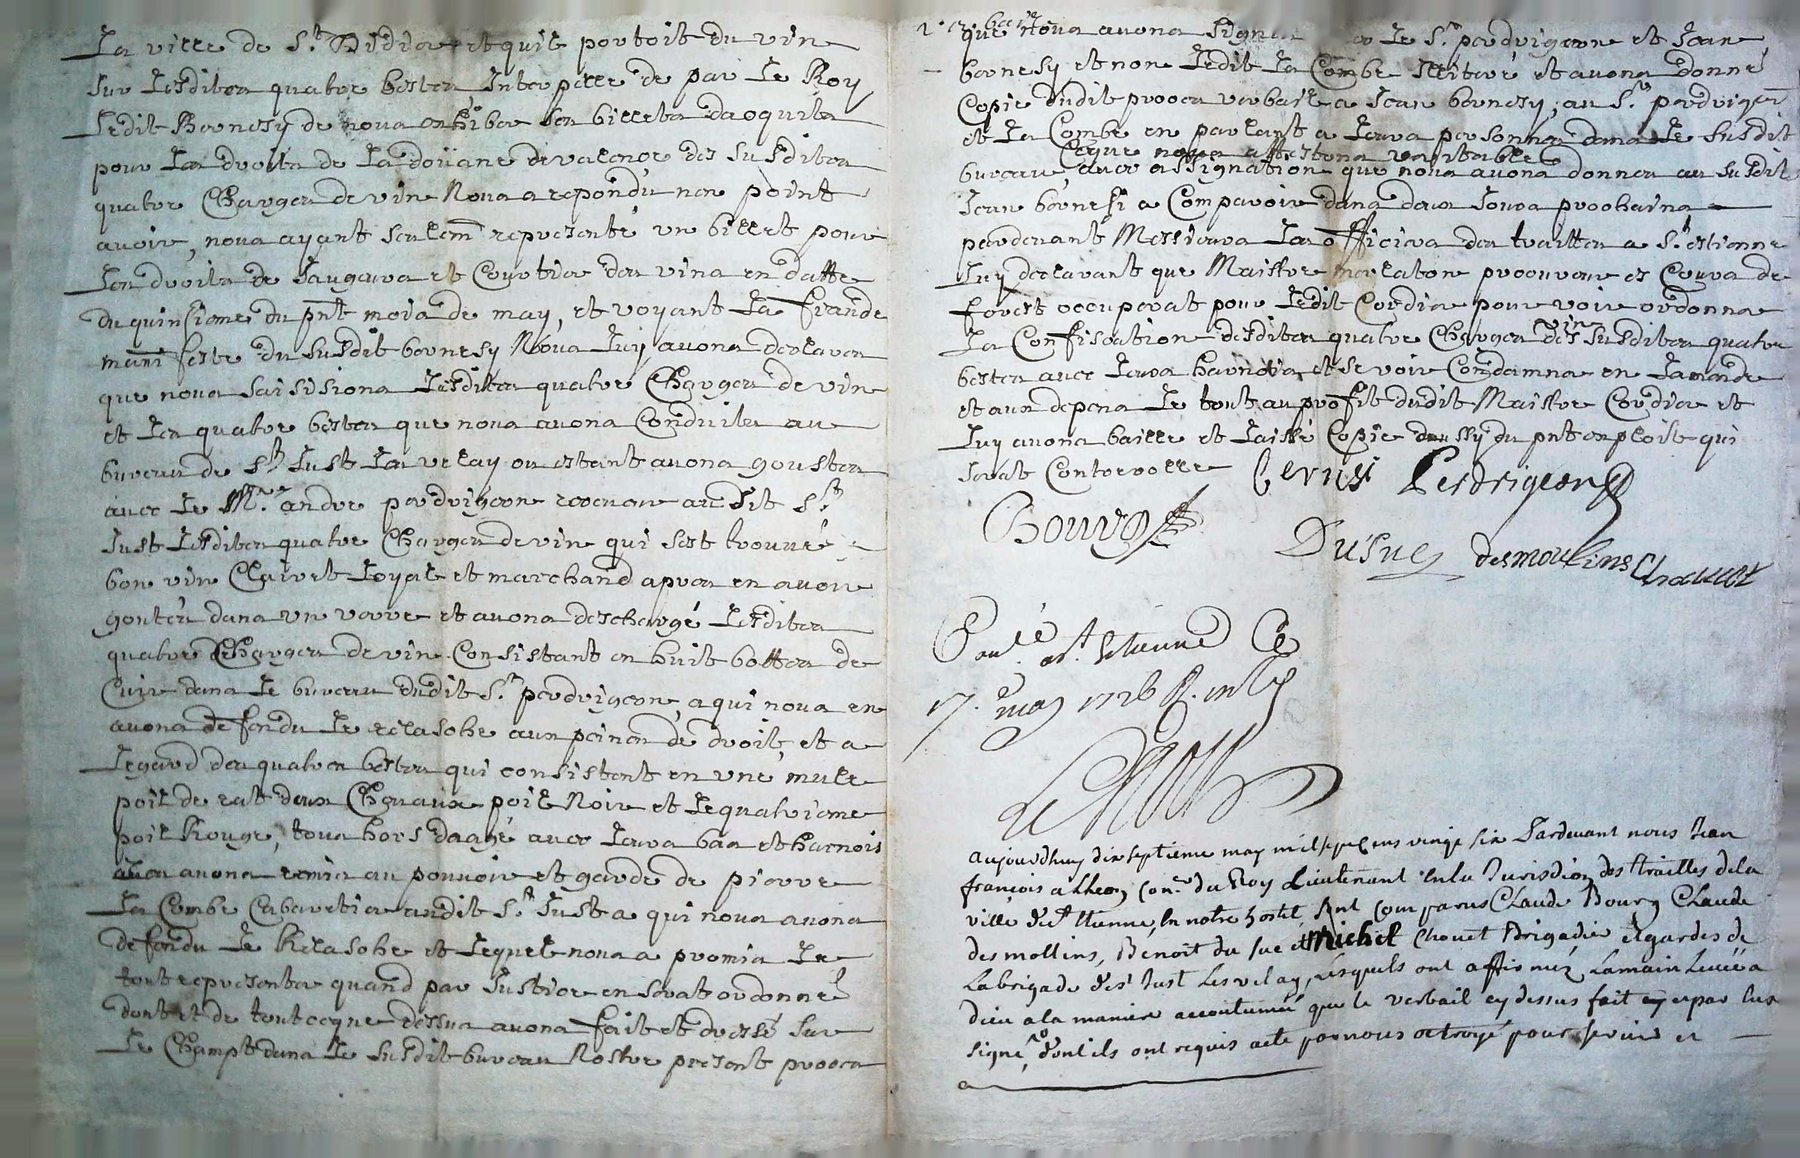 La ville de St Didier et quil portoit du vin
sur lesdites quatre bestes Interpellé de par le Roy
ledit Bornesy de nous exhiber les billets dacquits
pour les droits de la doüane de valence des susdites
quatre Charges de vin Nous a repondu nen point
avoir, nous ayant seulemt representé un billet pour
les droits de Jaugeurs et Courtier des vins en datte
du quinsieme du pnt mois de may, et voyant la fraude
manifeste du susdit bornesy Nous luy avons declaré
que nous saisisions lesdites quatre Charges de vin
et les quatre bestes que nous avons Conduites au
bureau de St Just les velay ou estant avons gousté
avec le Mre andre perdrigeon receveur audit St
Just lesdites quatre Charges de vin qui sest trouvé
bon vin Clairet loyal et marchand apres en avoir
gouté dans un verre et avons deschargé lesdites
quatre Charges de vin Consistant en huit bottes de
Cuir dans le bureau dudit Sr perdrigeon, a qui nous en
avons defendu le relasche aux peines de droit, et a
legard des quatres bestes qui consistent en une mule
poil de rat deux Chevaux poil Noir et le quatrieme
poil Rouge, tous hors daagé avec leurs bas et harnois
avons remis au pouvoir et garde de pierre
la Combe Cabaretier audit St Just a qui nous avons
defendu le Relasche et lequel nous a promis le
tout representer quand par Justice en serat ordonné
dont et de tout ceque dessus avons fait et dressé sur
le Champt dans le susdit bureau Nostre present proces
que Nous avons signé le Sr perdrigeon et Jean
bornesy et non ledit la Combe Illiteré et avons donné
Copie dudit proces verbail a Jean bornesy, au Sr perdrigeon
et la Combe en parlant a leurs personnes dans le susdit
Ceque nous attestons veritable
bureau, avec assignation que nous avons donnée au susdit
Jean bornesi a Comparoir dans deux Jours prochains
pardevant Messieurs les officiers des traittes a St estienne
luy declarant que Maistre procureur es Cours de
forest occuperat pour ledit Cordier pour voir ordonner
la Confiscation desdites quatre Charges vin des susdites quatre
bestes avec leurs harnois, et se voir Condamner en lamande
et aux depens le tout au profit dudit Maistre Cordier et
luy avons baillé et laissé Copie du pnt exploit qui
serat Contorolle Perdrigeon
Bourg
Dusuc desmoulins Chouvet
Conlé a St Etienne Ce
17. may 1726 R.
aujourdhuy dix septieme may mil sept cens vingt six Pardevant nous Jean
françois alleon, Coner du Roy Lieutenant en la Jurisdion des traittes de la
ville de St Etienne, En notre hostel sont Comparus Claude Bourg Claude
des mollins, Benoit du suc et Michel Chouet Brigadier et gardes de
La brigade de St Just Les velay, Lesquels ont affirmé, La main Levée a
dieu a la maniere accoutumée que le verbail cy dessus fait et par eux
signé, dont ils ont requis acte par nous octroyé pour servir et